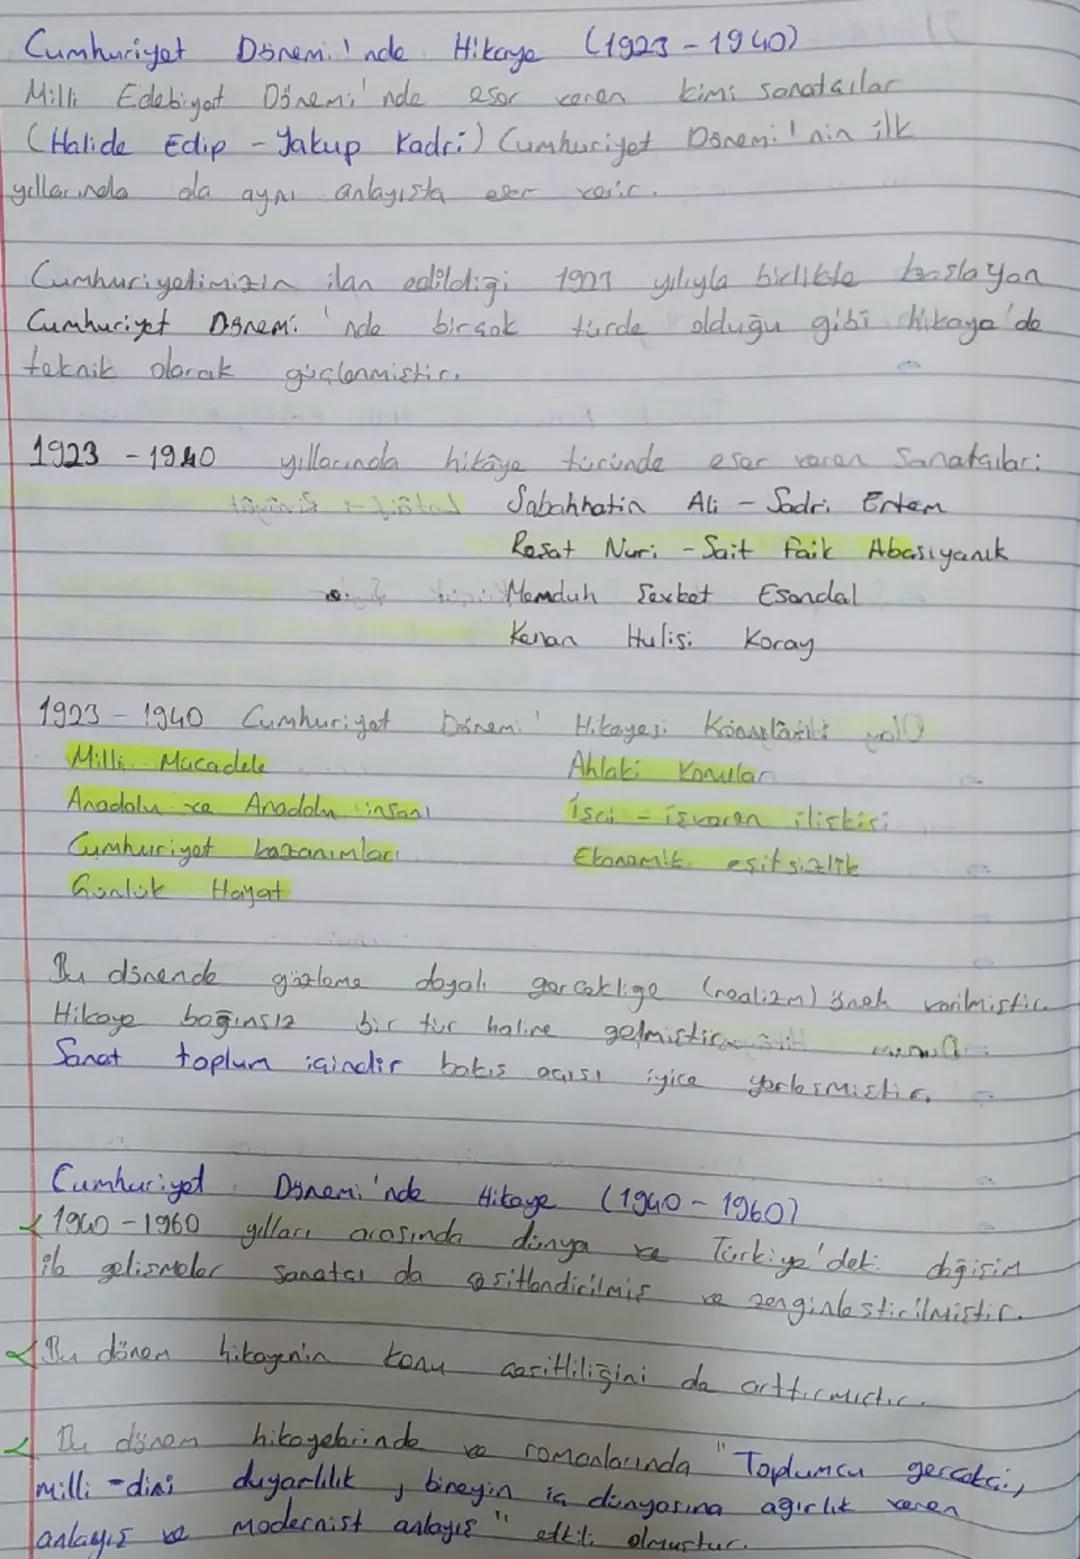 Cumhuriyet Dönemi'nde Hikaye (1923-1940)
Milli Edebiyat Dönemi'nde eser veren kimi sanatcılar
(Halide Edip - Yakup Kadri) Cumhuriyet Dönemi'nin ilk
yıllarında da aynı anlayışta eser verir.
Cumhuriyetimizin ilan edildiği 1923 yılıyla birlikte başlayan
Cumhuriyet Dönemi'nde birçok türde olduğu gibi hikaye'de
teknik olarak güçlenmiştir.
1923 - 1940 yıllarında hikâye türünde eser veren Sanatçılar:
Sabahhatin Ali - Sadri Ertem
Reşat Nuri - Sait Faik Abasıyanık
Memduh Şevket Esendal
Kenan Hulisi Koray
1923 - 1940 Cumhuriyet Dönemi Hikayesi
Milli Mücadele Ahlaki Konular
Anadolu ve Anadolu insanı İşci - işveren ilişkisi
Cumhuriyet kazanımları Ekonomik eşitsizlik
Günlük Hayat
Bu dönende gözleme dayalı gerçekliğe (realizm) önem verilmiştir.
Hikaye bağınsız bir tür haline gelmiştir
Sanat toplum içindir bakış açısı iyice yerleşmiştir.
Cumhuriyet Dönemi'nde Hikaye (1940 - 1960)
1940 - 1960 yılları arasında dünya ve Türkiye'deki değişim
ile gelişmeler sanatçı da çeşitlendirilmiş ve zenginleştirilmiştir.
Bu dönem hikayenin konu çeşitliliğini da arttırmıştır.
Bu dönem hikayelerinde ve romanlarında "Toplumcu gerçekçi,
milli - dini duyarlılık, bireyin iç dünyasına ağırlık veren
anlayış ve Modernist anlayış" etkili olmuştur.